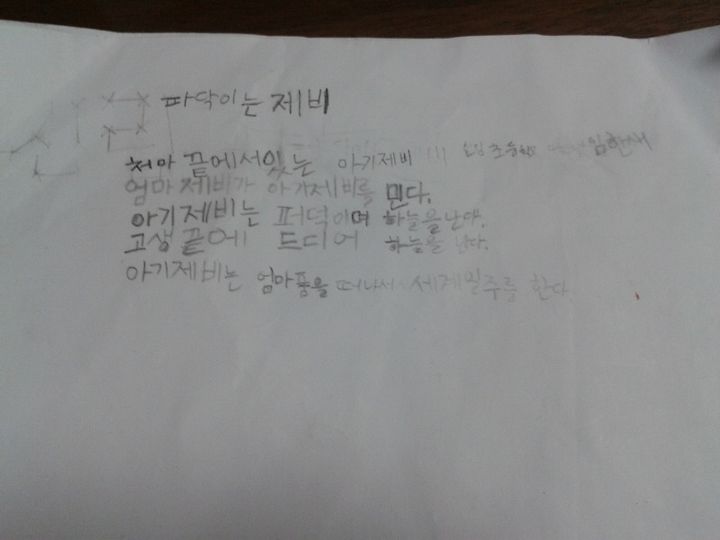 파닥이는 제비
처아 끝에서있는 아기제비
엄마 제비가 아기제비를 민다.
아기제비는 퍼덕이며 하늘을난다.
고생끝에 드디어 하늘을 난다.
아기제비는 엄마품을 떠나서 세계일주를 한다.